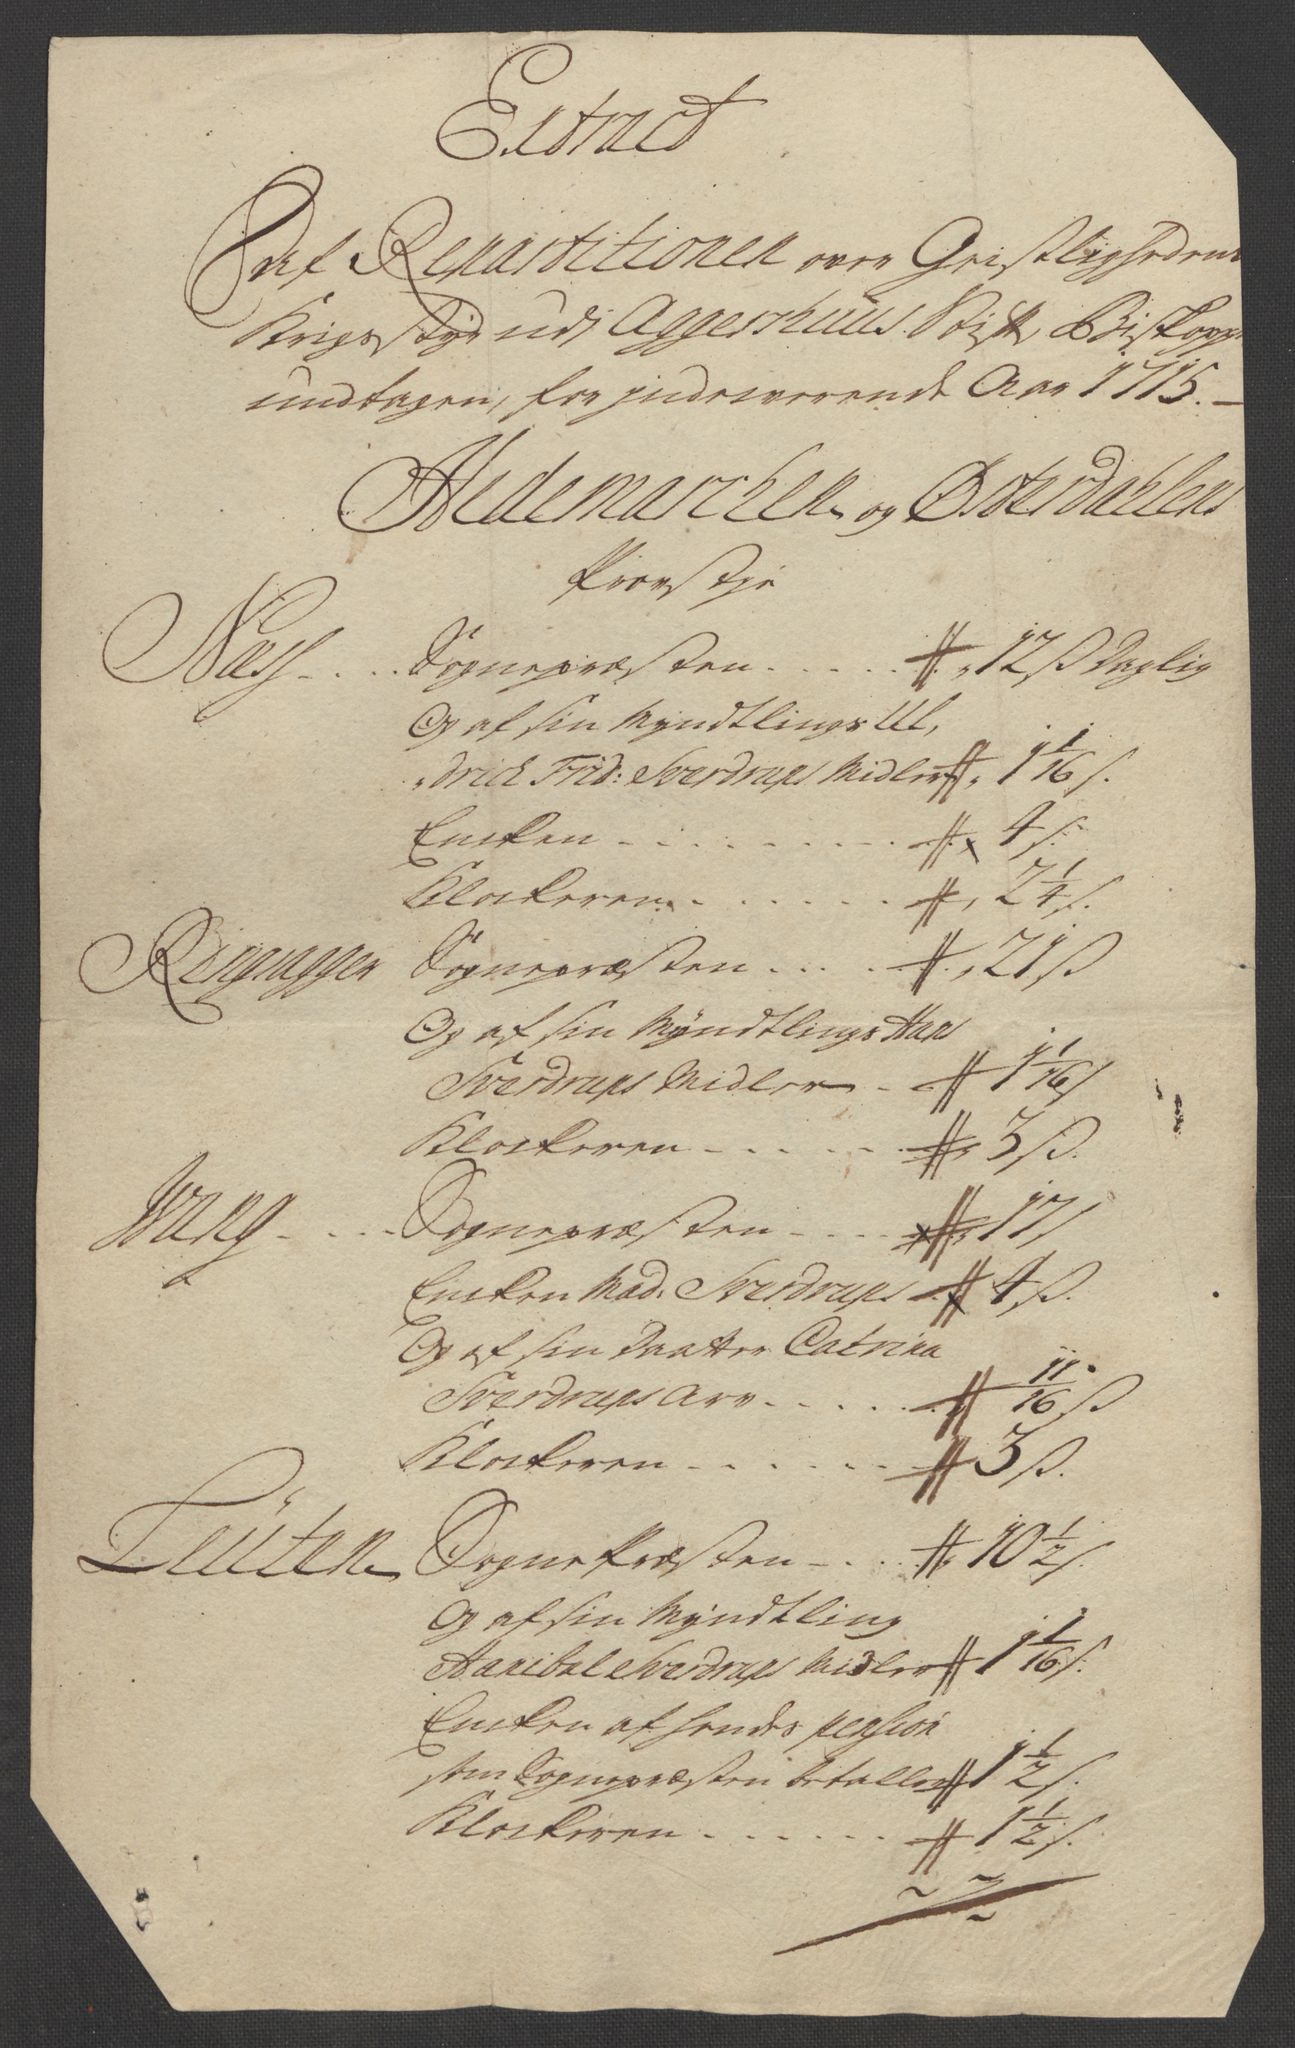 Extract
af Repartitionen over Geistlighedens
Krigs Styr udj Aggershuus Stift, Biskoppen
undtagen, for indeværende Aar 1715.
Hedemarchen og Østerdahlens
Provstie
Næss - . . . Sognepræsten . . . . . . 12 ß Daglig
Og af sin Myndtlings Ul„
„drich Frid: Sverdrups Midler „ 1 1/16 ß.
Encken - . . . . . . . 4 ß.
Klockeren . . . . . . . 2 1/4 ß.
Ringsagger Sognepræsten . . . . . 21 ß
Og af sin Myndtlings Hans
Sverdrups Midler - . 1 1/16 ß
Klockeren - . . . . . 3 ß.
Wang - . . . Sognepræsten - . . . 17 ß
Encken Mad. Sverdrups . 4 ß.
Og af sin Daatter Catrina
Sverdrups Arv . . . . . 11/16 ß
Klockeren - . . . . . . 3 ß.
Leüten Sognepræsten - . . . 10 1/2 ß.
Og af sin Myndtling
Hanibal Sverdrups Midler 1 1/16 ß.
Encken af hendes pension
som Sognepræsten betaller 1 1/2 ß.
Klockeren . . . . . . . 1 1/2 ß.